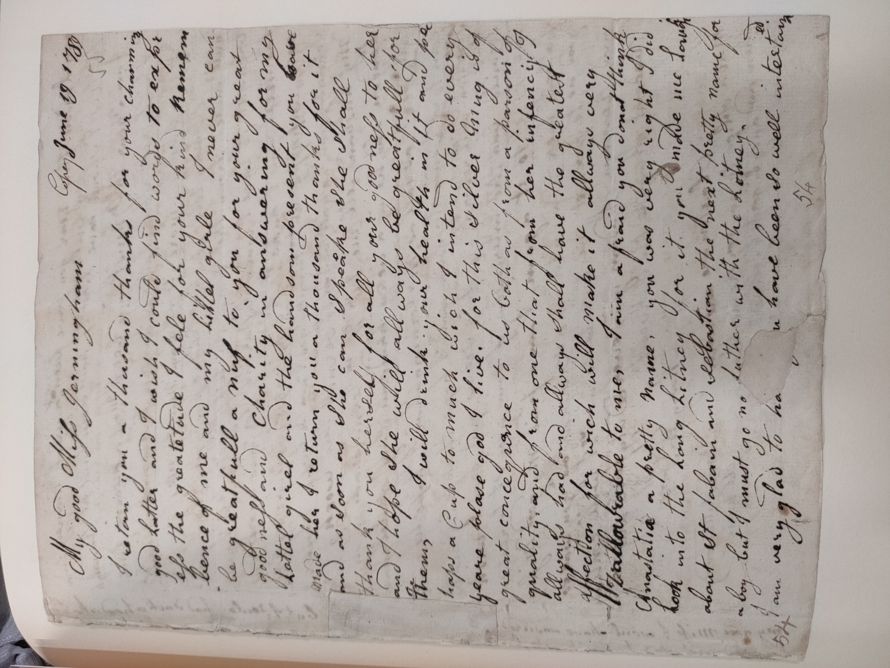 Copey June 19 1780
55
My good Miss Jerningham
I retan you a thusand thanks for your charming
good latter and I wish I could find words to expr
ess the greatetude I fele for your kind Remem
bence of me and my littel gale I never can
be greatfull a nuf to you for your great
goodness and Charity in answering for my
Lettel girel and the handsom present you have
made her I return you a thousand thanks for it
and as soon as she can speake she shall
thank you herself for all your goodness to her
and I hope she will allways be greatfull for
them, I will drink your health in It and pe
haps a Cup to much wich I intend to do every
yeare plase god I live. for this silver mug is of
great concequnce to us both as from a parson of
quality, and from one that from her infency I
allways had and allways shall have the greatest
affection for wich will make it allways very
Vallowrable to me, I am a fraid you donot think
Anastatia a pretty name, you was very right I did
look into the Long Litney for it you made me Laugh
about St fabain and Sebastian the next pretty name for
a boy but I must go no futher with the Litney.
I am very glad to ha u have been so well intertain
ed
54
54